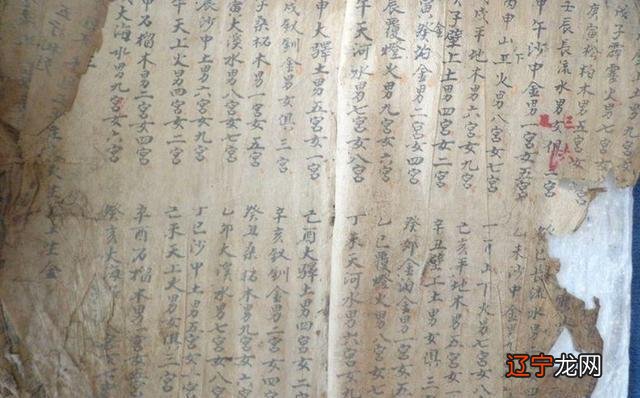 戊子霹靂火男七宮女
庚寅松柏木男五宮女
壬辰長流水男女俱三宮
甲午沙中金男一宮女五宮
丙申山下火男八宮女七宮
戌平地木男六宮女九宮
子壁上土男四宮女二宮
寅金泊金男二宮女四宮
辰覆燈火男九宮女六宮
午天河水男七宮女八宮
申大驛土男五宮女一宮
戌釵釧金男女俱三宮
子桑柘木男一宮女五宮
大溪水男八宮女七宮
辰沙中土男六宮女九宮
午天上火男四宮女二宮
申石榴木男二宮女四宮
大海水男九宮女六宮
巳長流水男
乙未沙中金男
丁酉山下火男七宮女八
己亥平地木男五宮女一
辛丑壁上土男女俱三宮
癸卯金泊金男一宮女五
乙巳覆燈火男八宮女
丁未天河水男六宮女
己酉大驛土男四宮女二
辛亥釵釧金男二宮女四宮
癸丑桑柘木男九宮女六宮
乙卯大溪水男七宮女八宮
丁巳沙中土男五宮女一宮
己未天上火男女俱三宮
辛酉石榴木男一宮女
癸亥大海水男八宮
辽宁龙网